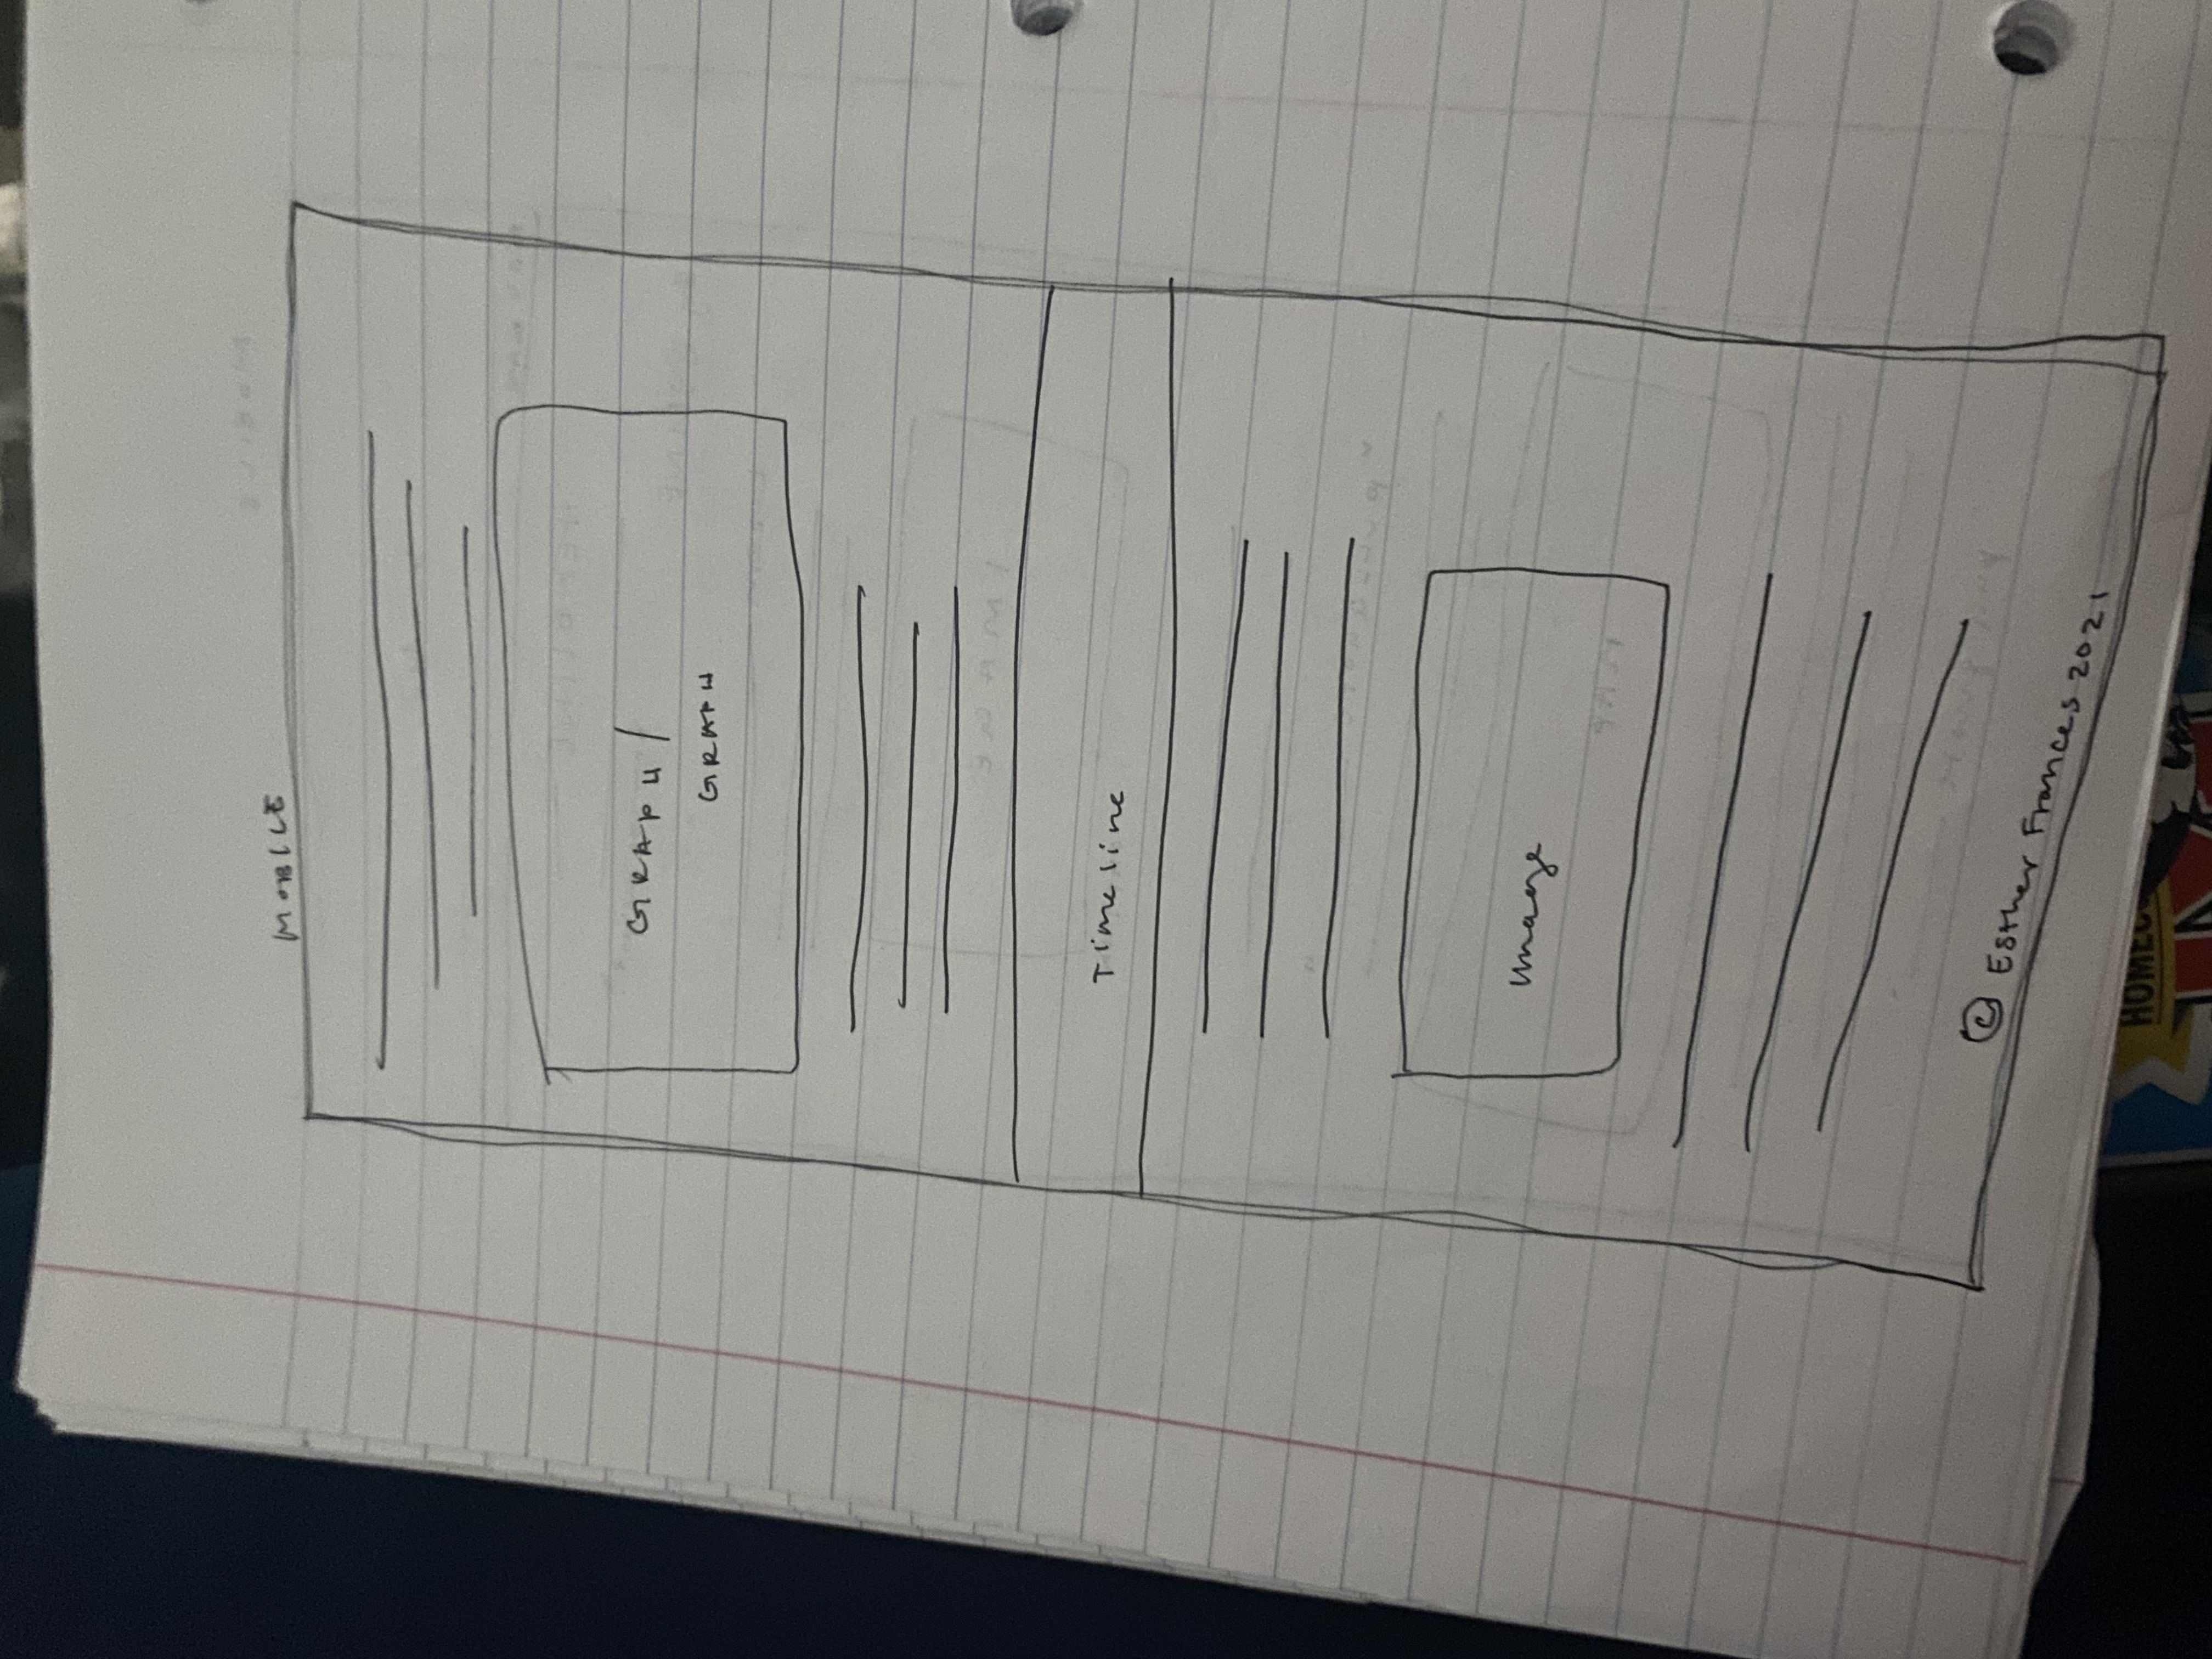 MOBILE
GRAPH /
GRAPH
Timeline
image
© Esther Frances 2021
HOMEC